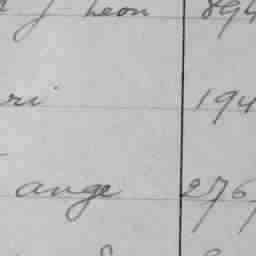 J Leon 894
ri 194
ange 276